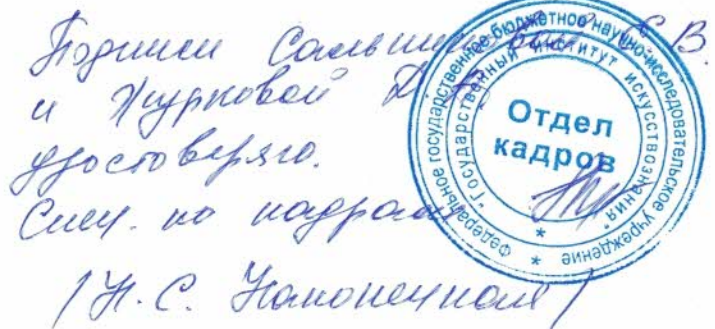 Подписи Сальниковой Е.В.
и Журковой Д.А.
удостоверяю.
Спец. по кадрам
/Н.С. Наконечная/
Федеральное государственное бюджетное научно-исследовательское учреждение
"Государственный институт искусствознания"
Отдел
кадров